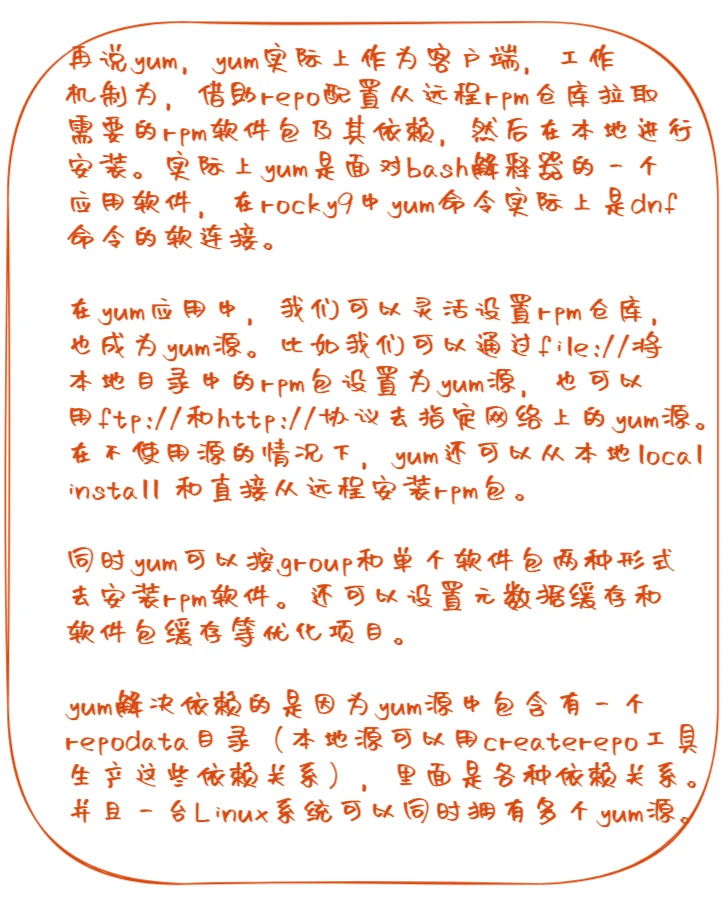 再说yum，yum实际上作为客户端，工作
机制为，借助repo配置从远程rpm仓库拉取
需要的rpm软件包及其依赖，然后在本地进行
安装。实际上yum是面对bash解释器的一个
应用软件，在rocky9中yum命令实际上是dnf
命令的软连接。
在yum应用中，我们可以灵活设置rpm仓库，
也成为yum源。比如我们可以通过file://将
本地目录中的rpm包设置为yum源，也可以
用ftp://和http://协议去指定网络上的yum源。
在不使用源的情况下，yum还可以从本地local
install 和直接从远程安装rpm包。
同时yum可以按group和单个软件包两种形式
去安装rpm软件。还可以设置元数据缓存和
软件包缓存等优化项目。
yum解决依赖的是因为yum源中包含有一个
repodata目录（本地源可以用createrepo工具
生产这些依赖关系），里面是各种依赖关系。
并且一台Linux系统可以同时拥有多个yum源。